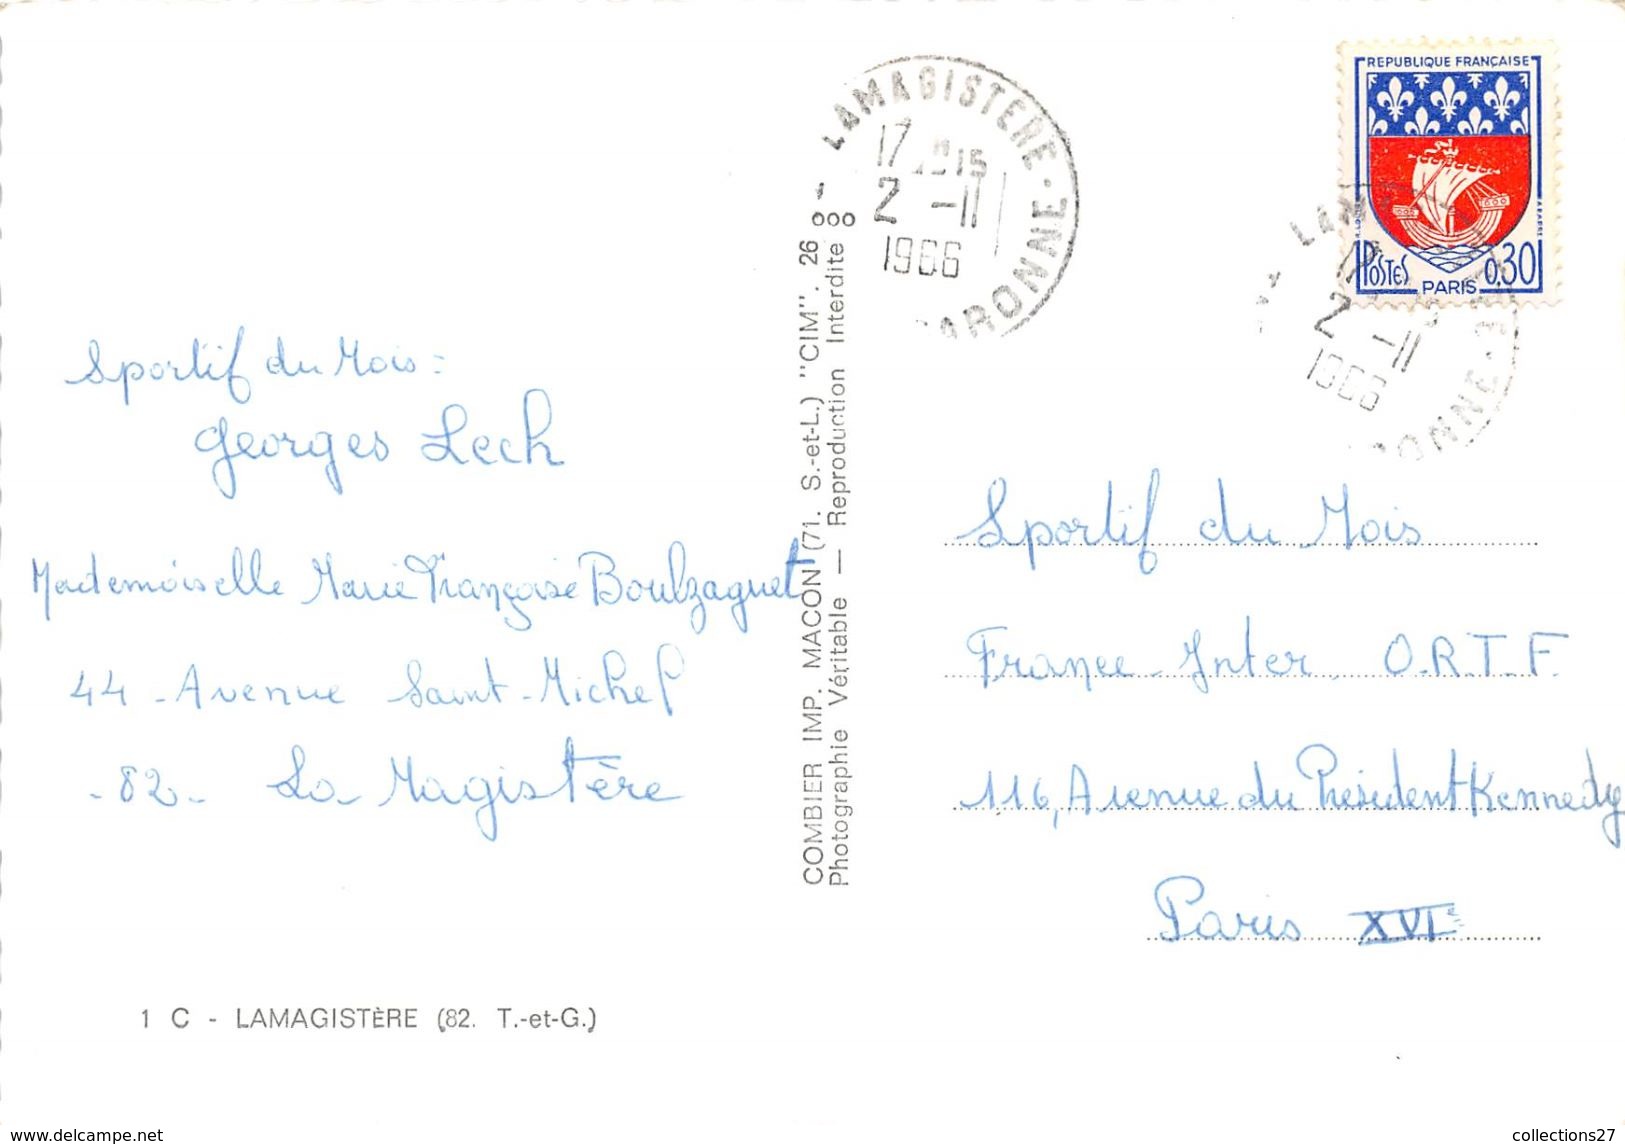 Sportif du Mois :
Georges Lech
Mademoiselle Marie Françoise Boulzaguet
44 - Avenue Saint-Michel
- 82 - La Magistère
1 C - LAMAGISTÈRE (82. T.-et-G.)
COMBIER IMP. MACON (71. S.-et-L.) "CIM". 26
Photographie Véritable — Reproduction Interdite
LAMAGISTERE
17 H15
2 -11
1966
GARONNE
REPUBLIQUE FRANÇAISE
POSTES
0,30
PARIS
2 -11
1966
Sportif du Mois
France-Inter, O.R.T.F.
116, Avenue du Président Kennedy
Paris XVIe
www.delcampe.net
collections27